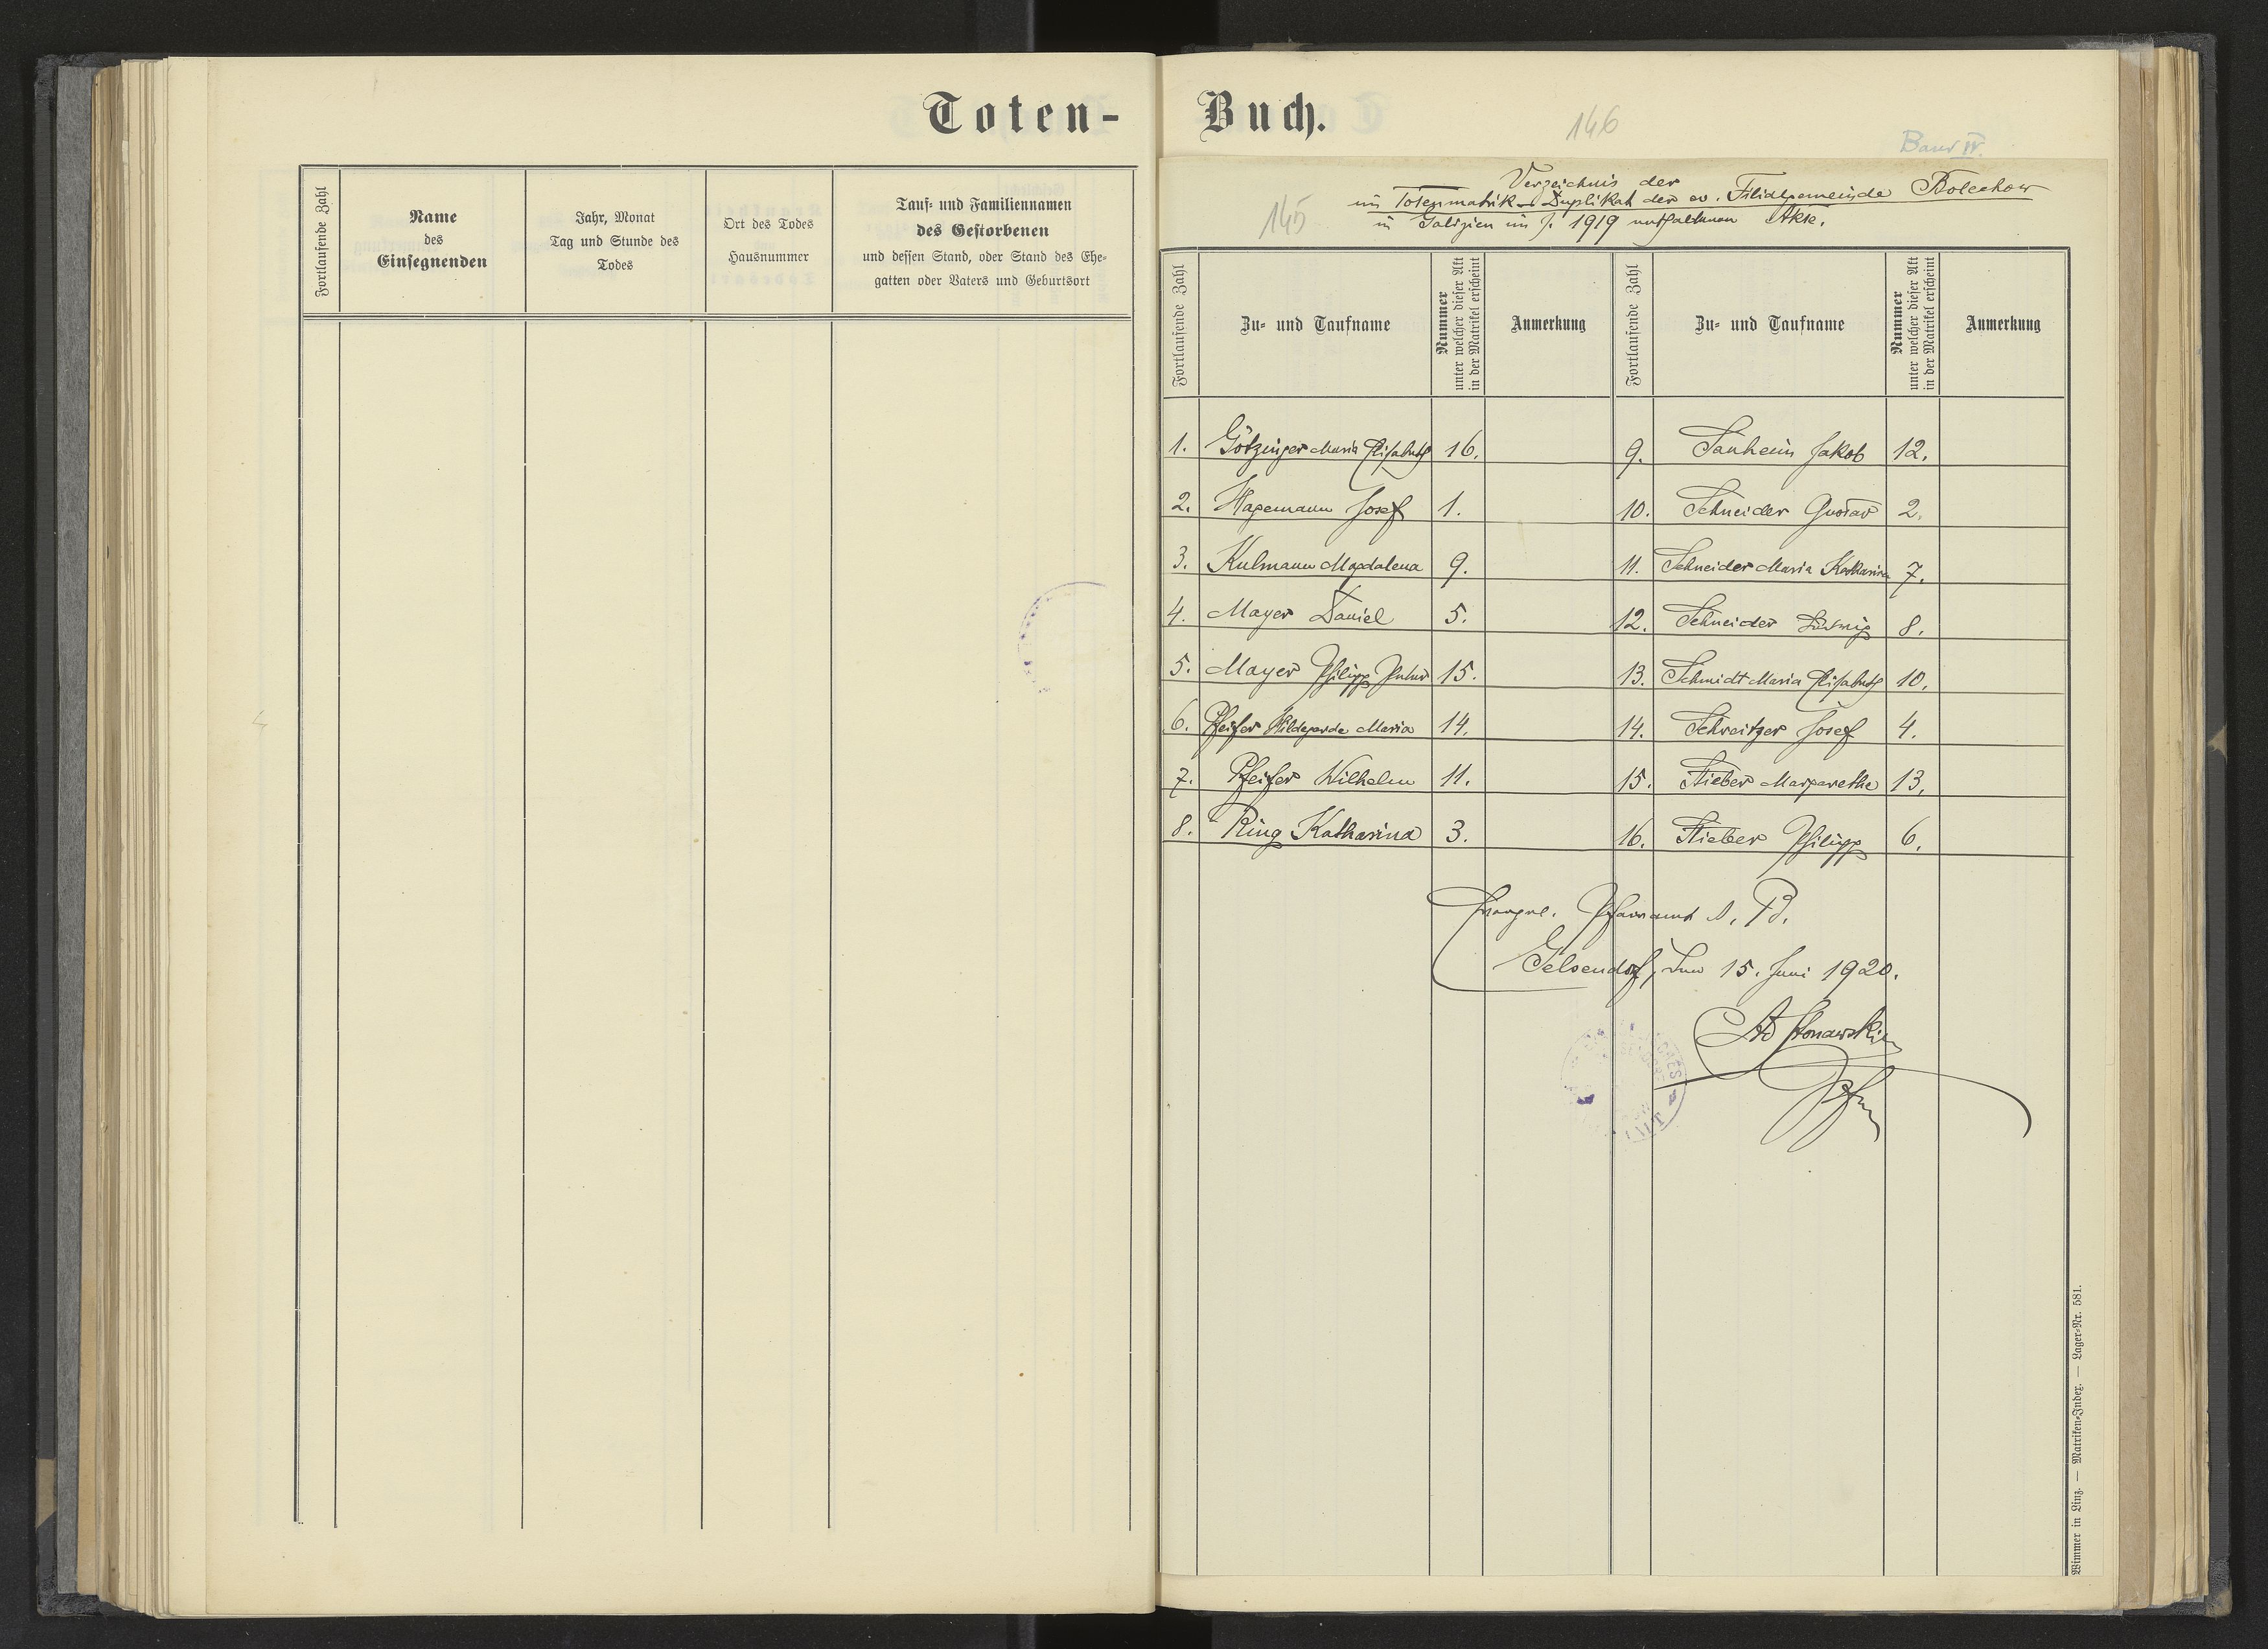 Toten-
Fortlaufende Zahl
Name
des
Einsegnenden
Jahr, Monat
Tag und Stunde des
Todes
Ort des Todes
Hausnummer
Tauf= und Familiennamen
des Gestorbenen
und dessen Stand, oder Stand des Ehe=
gatten oder Vaters und Geburtsort
Buch.
146
Band IV.
145
Verzeichnis der
im Totenmatrik-Duplikat der ev. Filialgemeinde Bolechow
in Galizien im J. 1919 enthaltenen Akte.
Fortlaufende Zahl
Zu= und Taufname
Nummer
unter welcher dieser Akt
in der Matrikel erscheint
Anmerkung
Fortlaufende Zahl
Zu= und Taufname
Nummer
unter welcher dieser Akt
in der Matrikel erscheint
Anmerkung
1. Götzinger Maria Elisabeth 16.
2. Hagemann Josef 1.
3. Kulmann Magdalena 9.
4. Mayer Daniel 5.
5. Mayer Philipp 15.
6. Pfeifer Hildegarde Maria 14.
7. Pfeifer Wilhelm 11.
8. Ring Katharina 3.
9. Sauheim Jakob 12.
10. Schneider Gustav 2.
11. Schneider Maria Katharina 7.
12. Schneider Ludwig 8.
13. Schmidt Maria Elisabeth 10.
14. Schweitzer Josef 4.
15. Stieber Margarethe 13.
16. Stieber Philipp 6.
Evangel. Pfarramt A. B.
Gelsendorf, den 15. Juni 1920.
Pfr
Wimmer in Linz. — Matriken=Index. — Lager=Nr. 581.